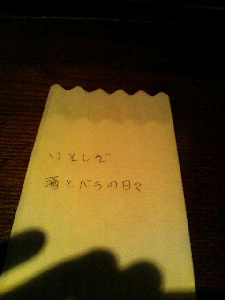 いそしぎ
酒とバラの日々